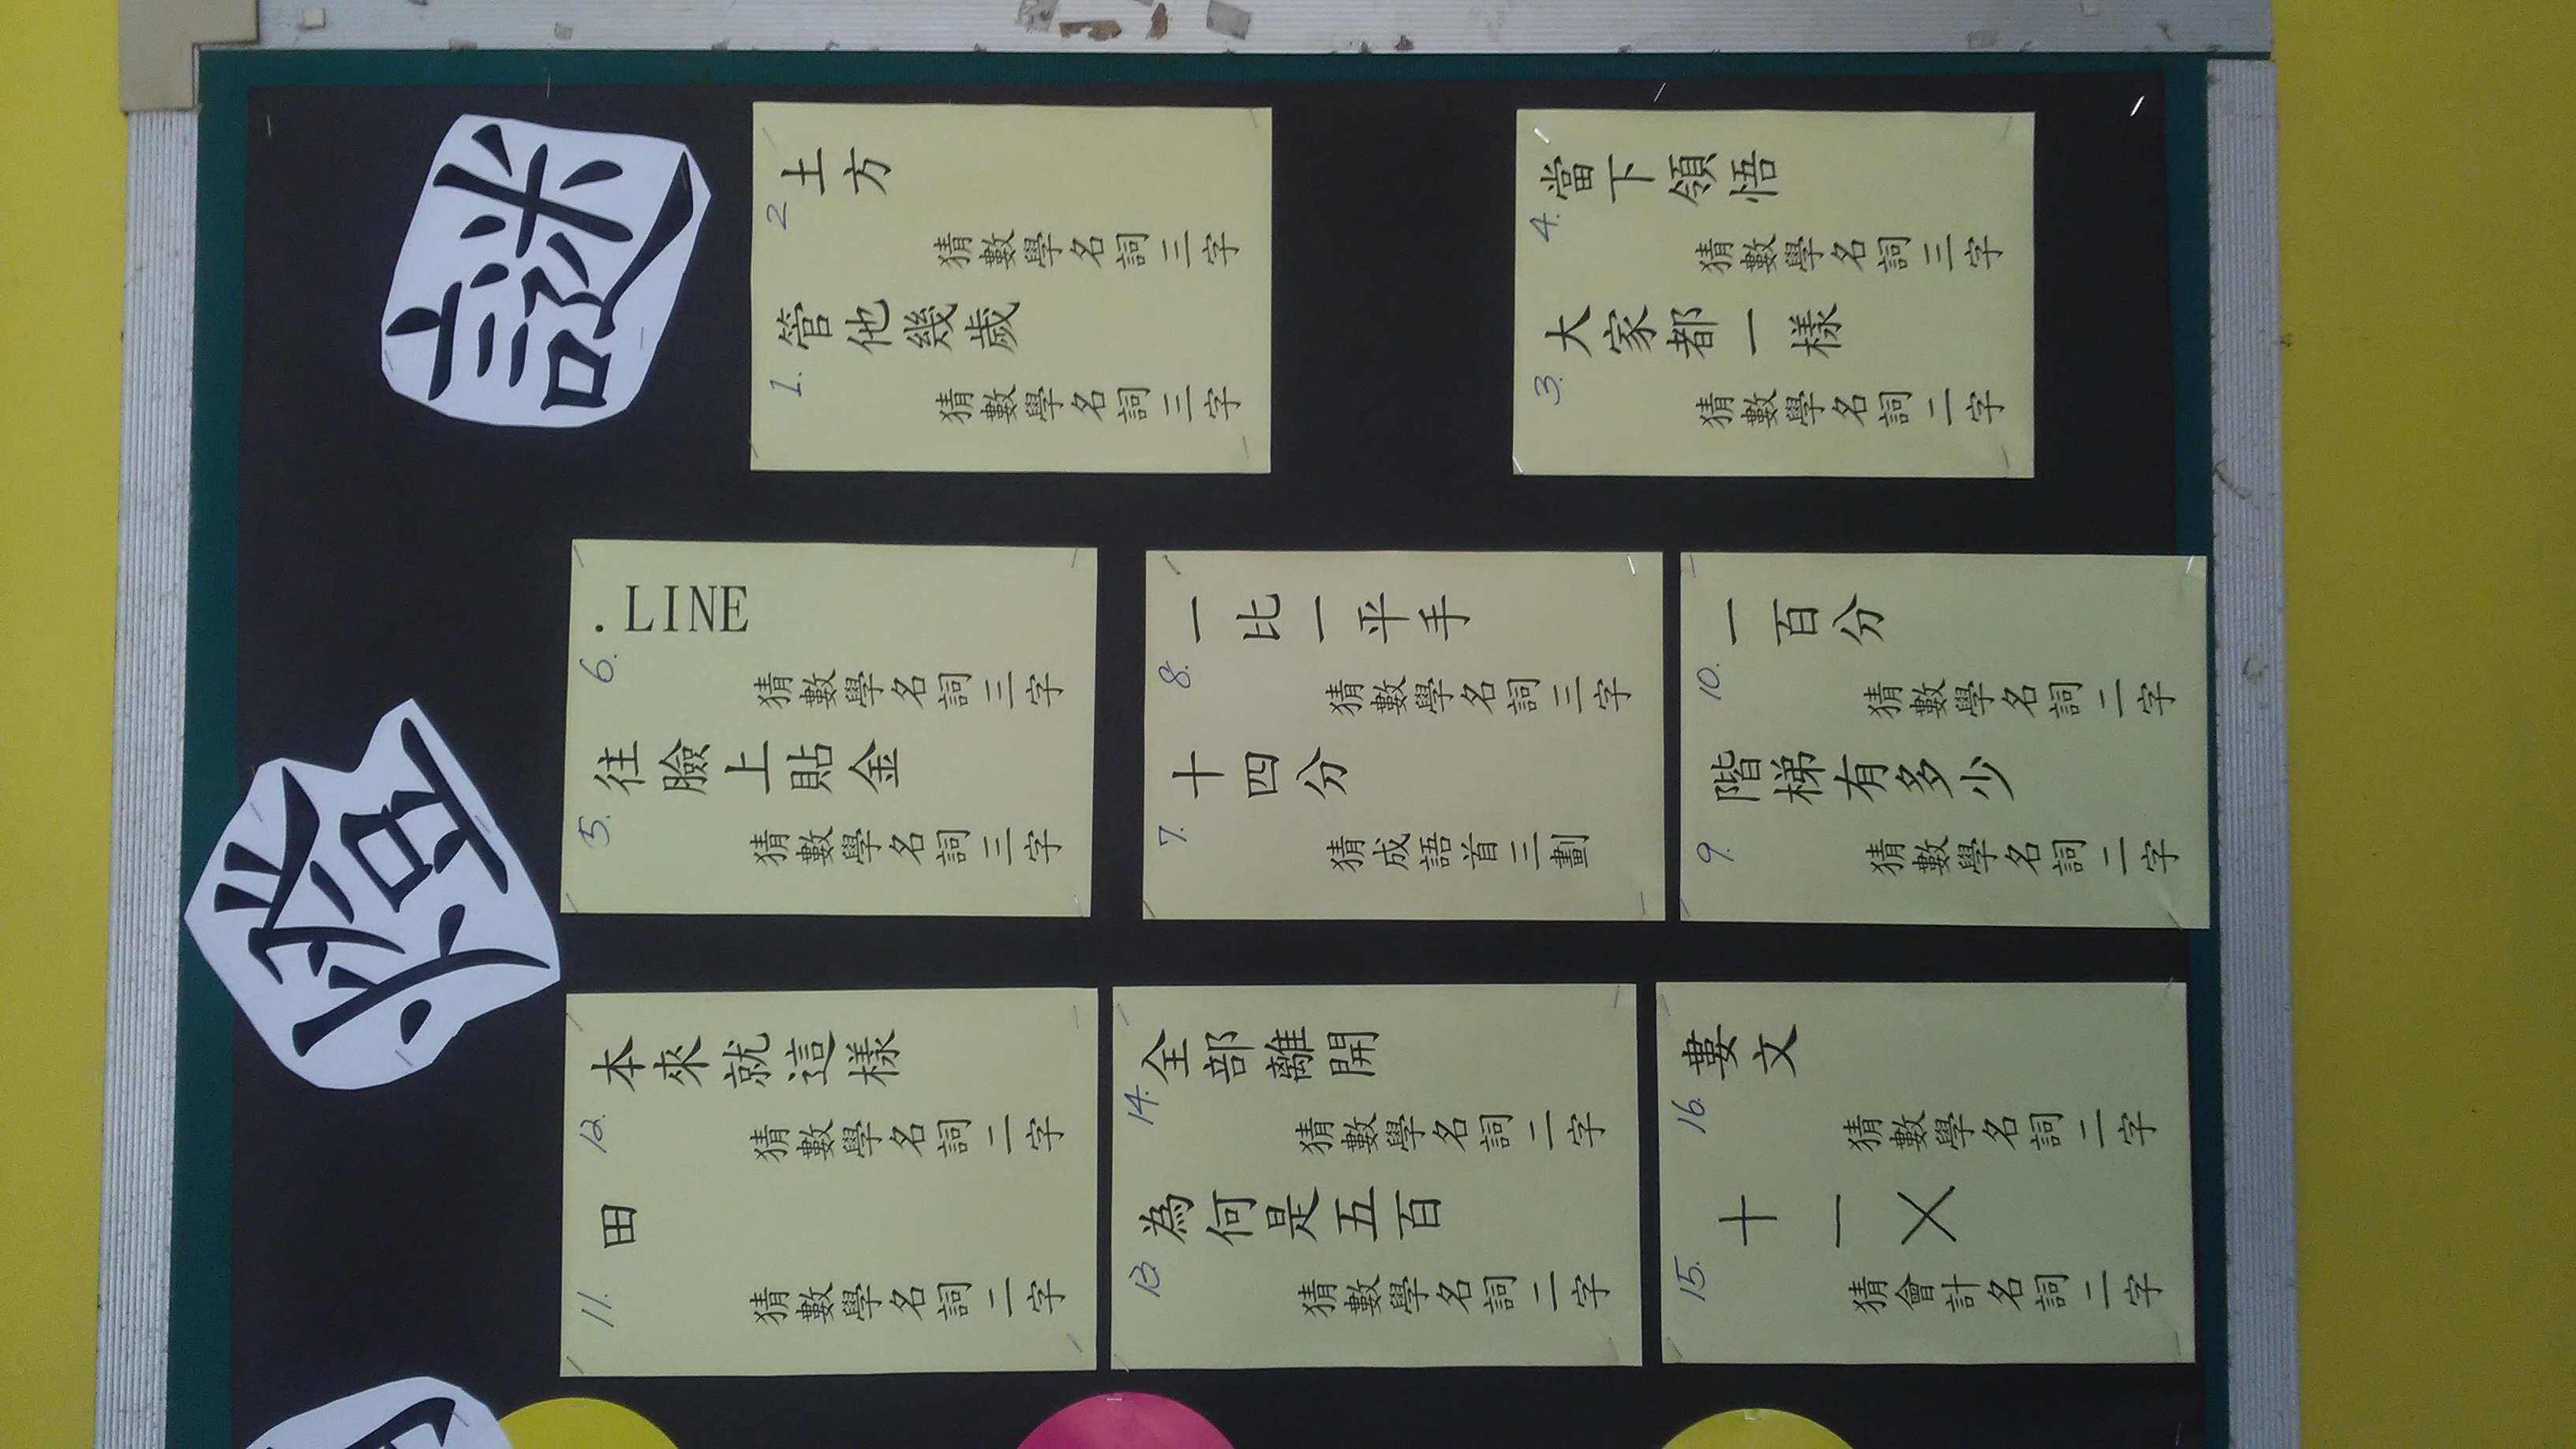 燈謎
1.
管他幾歲
猜數學名詞三字
2
土方
猜數學名詞三字
3.
大家都一樣
猜數學名詞二字
4.
當下領悟
猜數學名詞三字
5.
往臉上貼金
猜數學名詞三字
6.
.LINE
猜數學名詞三字
7.
十四分
猜成語首三劃
8.
一比一平手
猜數學名詞三字
9.
階梯有多少
猜數學名詞二字
10.
一百分
猜數學名詞二字
11.
田
猜數學名詞二字
12.
本來就這樣
猜數學名詞二字
13
為何是五百
猜數學名詞二字
14.
全部離開
猜數學名詞二字
15.
十一㐅
猜會計名詞二字
16.
婁文
猜數學名詞二字